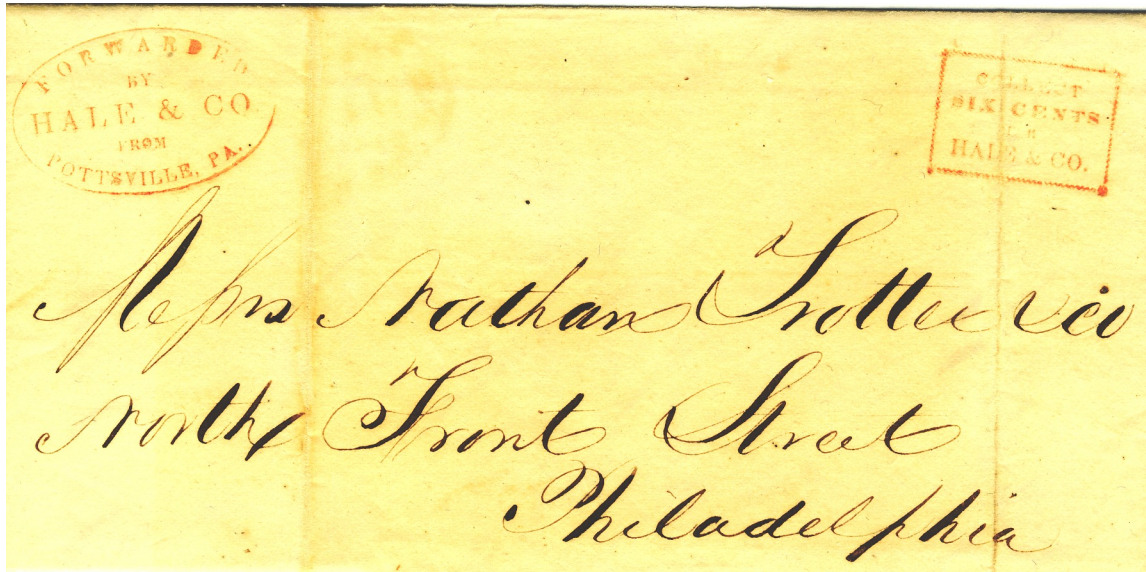 FORWARDED
BY
HALE & CO.
FROM
POTTSVILLE, PA.
COLLECT
SIX CENTS
FOR
HALE & CO.
Messrs Nathan Trotter & Co
North Front Street
Philadelphia